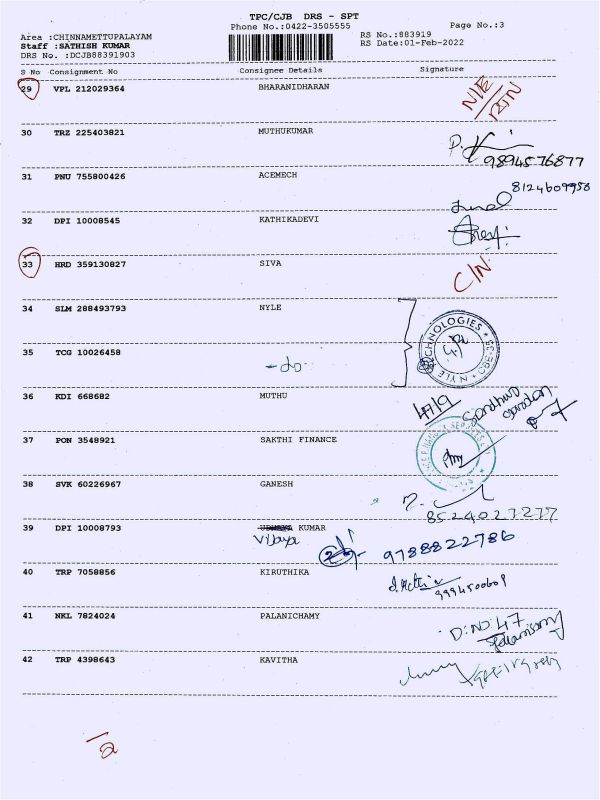 TPC/CJB DRS - SPT
Phone No.:0422-3505555
Page No.:3
Area :CHINNAMETTUPALAYAM
Staff :SATHISH KUMAR
DRS No. :DCJB88391903
RS No.:883919
RS Date:01-Feb-2022
S No Consignment No Consignee Details Signature
29 VPL 212029364 BHARANIDHARAN
30 TRZ 225403821 MUTHUKUMAR
9894576877
31 PNU 755800426 ACEMECH
8124609958
32 DPI 10008545 KATHIKADEVI
33 HRD 359130827 SIVA C/N.
34 SLM 288493793 NYLE
NYLE TECHNOLOGIES
35 TCG 10026458 -do-
36 KDI 668682 MUTHU
37 PON 3548921 SAKTHI FINANCE
38 SVK 60226967 GANESH
8524023277
39 DPI 10008793 KUMAR
Vijaya 9788822786
40 TRP 7058856 KIRUTHIKA
41 NKL 7824024 PALANICHAMY
D:NO:47
42 TRP 4398643 KAVITHA